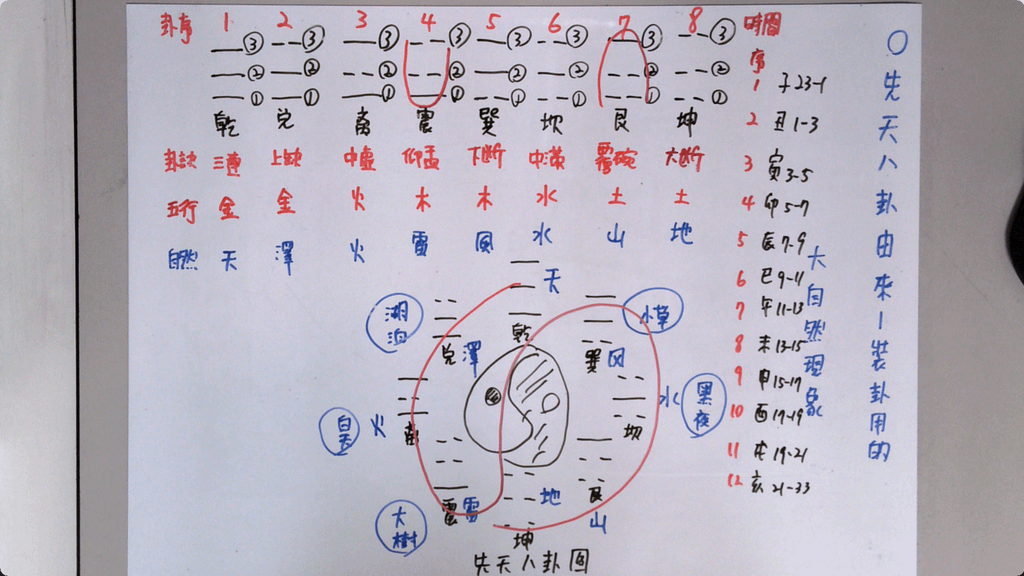 卦序 1 2 3 4 5 6 7 8
③ ③ ③ ③ ③ ③ ③ ③
② ② ② ② ② ② ② ②
① ① ① ① ① ① ① ①
乾 兌 离 震 巽 坎 艮 坤
卦訣 三連 上缺 中虛 仰盂 下斷 中滿 覆碗 六斷
五行 金 金 火 木 木 水 土 土
自然 天 澤 火 雷 風 水 山 地
時間
序
1 子 23-1
2 丑 1-3
3 寅 3-5
4 卯 5-7
5 辰 7-9
6 巳 9-11
7 午 11-13
8 未 13-15
9 申 15-17
10 酉 19-19
11 戌 19-21
12 亥 21-33
○先天八卦由來-裝卦用的
大自然現象
天
乾
湖泊
兌 澤
小草
巽 风
白天
火
离
水
黑夜
坎
大樹
震 雷
地
坤
艮
山
先天八卦圖